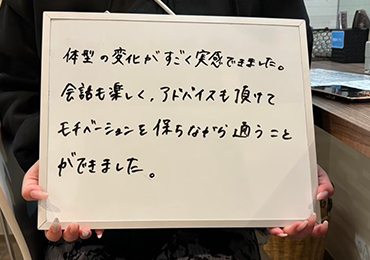 体型の変化がすごく実感できました。
会話も楽しく、アドバイスも頂けて
モチベーションを保ちながら通うこと
ができました。